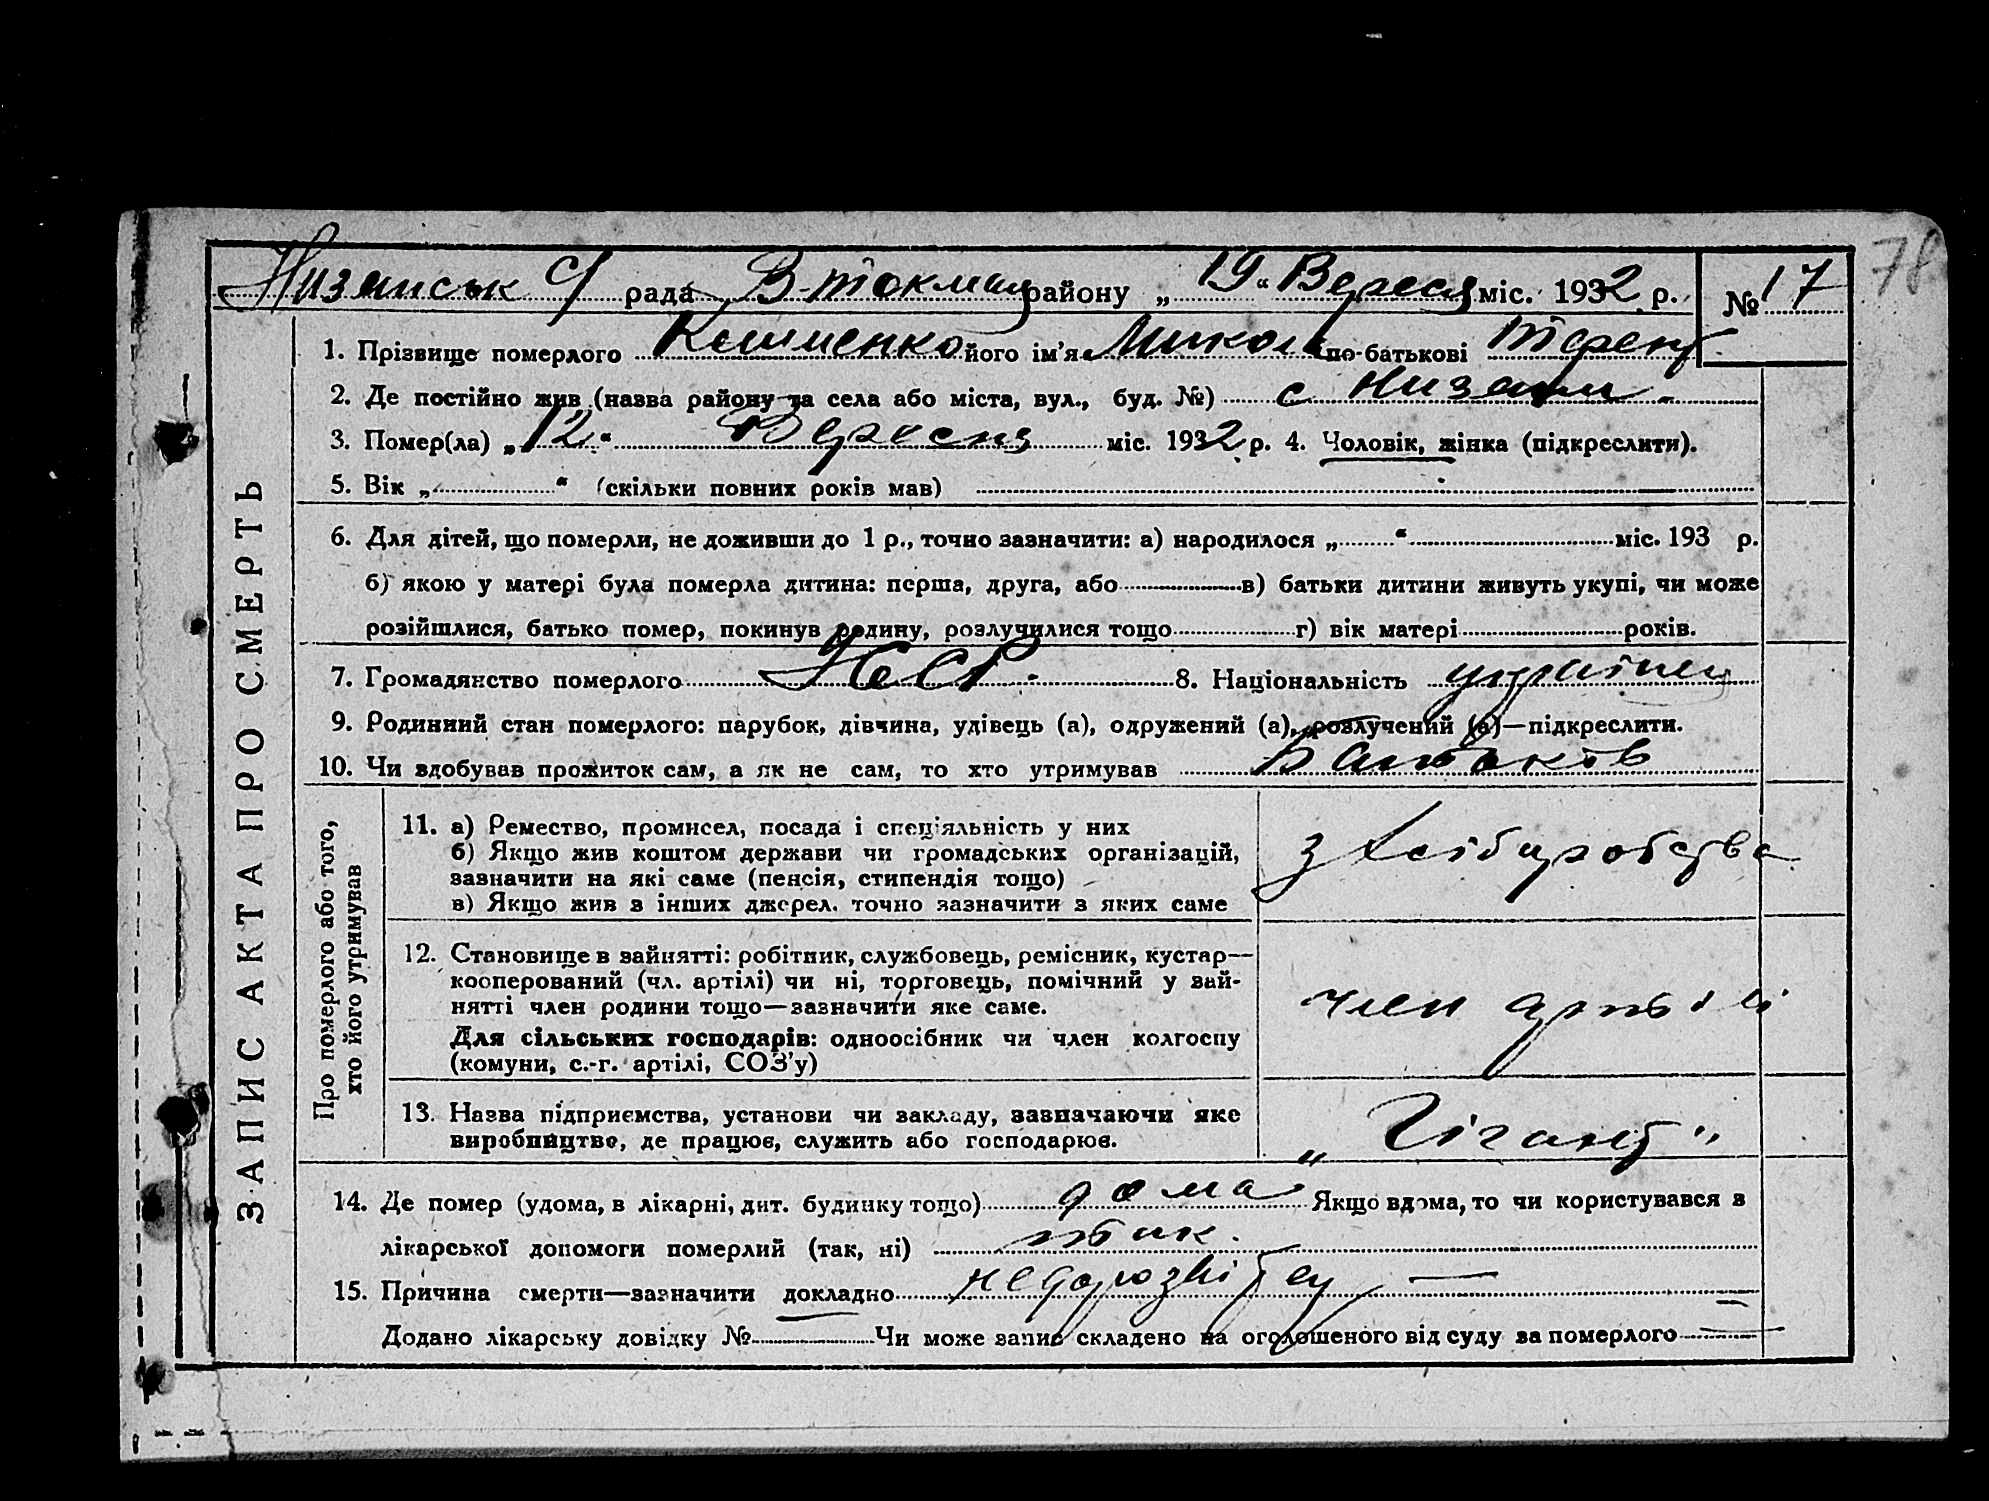 78
Низянськ С/ рада В-Токмац району „19“ Вересня міс. 1932 р. № 17
1. Прізвище померлого його ім'я Микола по-батькові Терент
2. Де постійно жив (назва району та села або міста, вул., буд. №) с Низяни
3. Помер(ла) „12“ Вересня міс. 1932 р. 4. Чоловік, жінка (підкреслити).
5. Вік „ “ (скільки повних років мав)
6. Для дітей, що померли, не доживши до 1 р., точно зазначити: а) народилося „ “ міс. 193 р.
б) якою у матері була померла дитина: перша, друга, або в) батьки дитини живуть укупі, чи може
розійшлися, батько помер, покинув родину, розлучилися тощо г) вік матері років.
7. Громадянство померлого УССР. 8. Національність українец
9. Родинний стан померлого: парубок, дівчина, удівець (а), одружений (а), розлучений (а)—підкреслити.
10. Чи здобував прожиток сам, а як не сам, то хто утримував Батьків
ЗАПИС АКТА ПРО СМЕРТЬ
Про померлого або того,
хто його утримував
11. а) Ремество, промисел, посада і спеціяльність у них
б) Якщо жив коштом держави чи громадських організацій,
зазначити на які саме (пенсія, стипендія тощо)
в) Якщо жив з інших джерел, точно зазначити з яких саме
з Хліборобства
12. Становище в зайнятті: робітник, службовець, ремісник, кустар—
кооперований (чл. артілі) чи ні, торговець, помічний у зай-
нятті член родини тощо—зазначити яке саме.
Для сільських господарів: одноосібник чи член колгоспу
(комуни, с.-г. артілі, СОЗ'у)
член артілі
13. Назва підприємства, установи чи закладу, зазначаючи яке
виробництво, де працює, служить або господарює.
„Гігант“
14. Де помер (удома, в лікарні, дит. будинку тощо) дома Якщо вдома, то чи користувався з
лікарської допомоги померлий (так, ні) так.
15. Причина смерти—зазначити докладно —
Додано лікарську довідку № Чи може запис складено на оголошеного від суду за померлого —